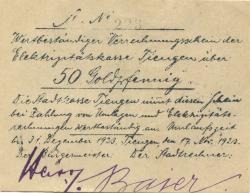 D. No 223
Wertbeständiger Verrechnungsschein der
Elektrizitätskasse Tiengen über
50 Goldpfennig.
Die Stadtkasse Tiengen nimmt diesen Schein
bei Zahlung von Umlagen und Elektrizitäts-
rechnungen wertbeständig an. Umlaufszeit
bis 31. Dezember 1923. Tiengen, den 17. Nov. 1923.
Der Bürgermeister Der Stadtrechner.